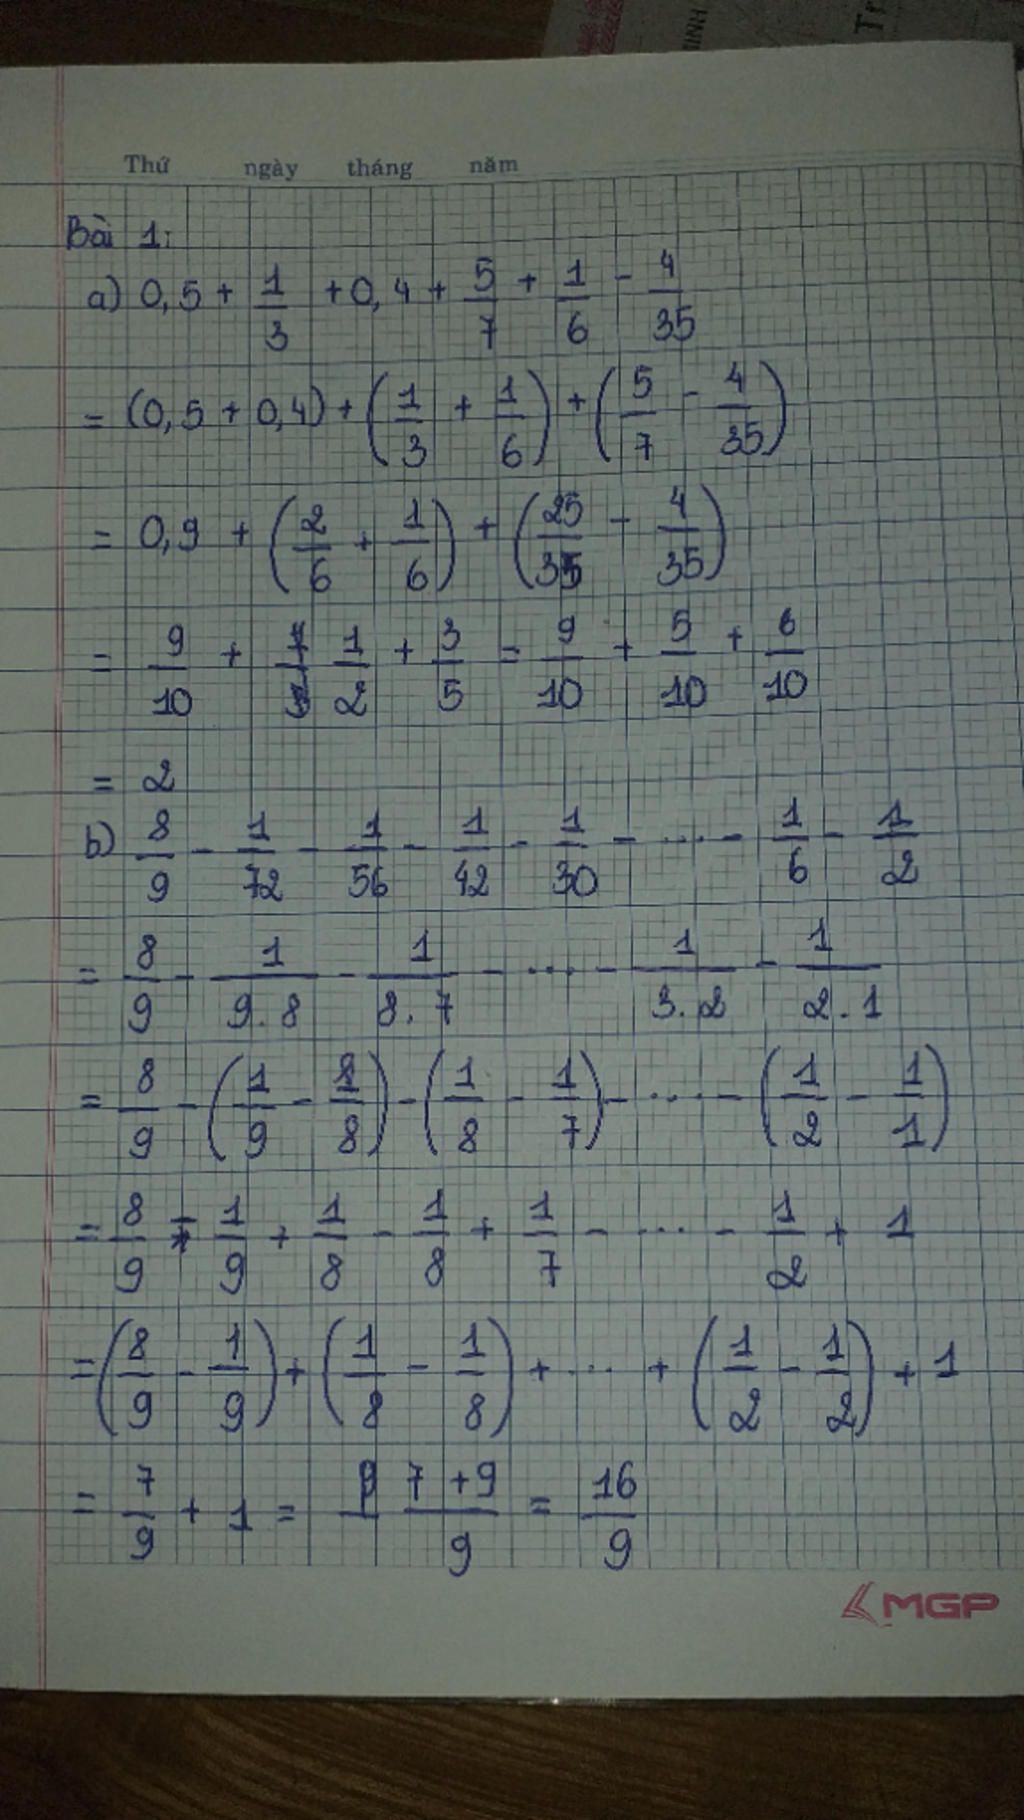 INH
Tr
Thứ ngày tháng năm
Bài 1:
a) 0,5 + 1/3 + 0,4 + 5/7 + 1/6 - 4/35
= (0,5 + 0,4) + (1/3 + 1/6) + (5/7 - 4/35)
= 0,9 + (2/6 + 1/6) + (25/35 - 4/35)
= 9/10 + 1/2 + 3/5 = 9/10 + 5/10 + 6/10
= 2
b) 8/9 - 1/72 - 1/56 - 1/42 - 1/30 - ... - 1/6 - 1/2
= 8/9 - 1/9.8 - 1/8.7 - ... - 1/3.2 - 1/2.1
= 8/9 - (1/9 - 1/8) - (1/8 - 1/7) - ... - (1/2 - 1/1)
= 8/9 - 1/9 + 1/8 - 1/8 + 1/7 - ... - 1/2 + 1
= (8/9 - 1/9) + (1/8 - 1/8) + ... + (1/2 - 1/2) + 1
= 7/9 + 1 = 7+9/9 = 16/9
MGP